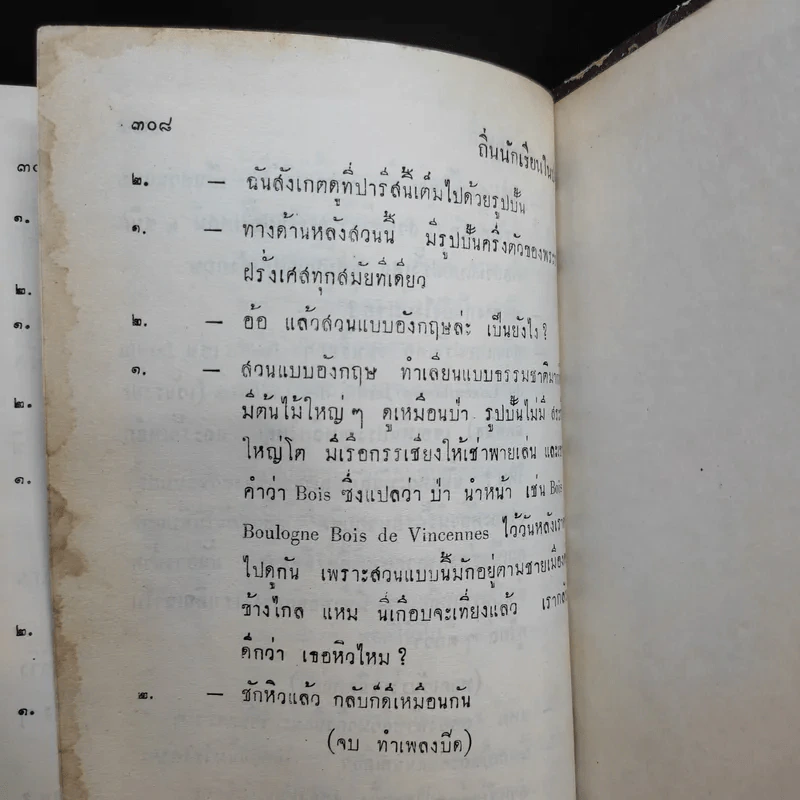 ๓๐๘
ถิ่นนักเรียนใน
๒. — ฉันสังเกตดูที่ปารีสนี้เต็มไปด้วยรูปปั้น
๑. — ทางด้านหลังสวนนี้ มีรูปปั้นครึ่งตัวของพระ
ฝรั่งเศสทุกสมัยทีเดียว
๒. — อ้อ แล้วสวนแบบอังกฤษล่ะ เป็นยังไง?
๑. — สวนแบบอังกฤษ ทำเลียนแบบธรรมชาติมาก
มีต้นไม้ใหญ่ ๆ ดูเหมือนป่า รูปปั้นไม่มี สระ
ใหญ่โต มีเรือกรรเชียงให้เช่าพายเล่น และ
คำว่า Bois ซึ่งแปลว่า ป่า นำหน้า เช่น Bois
Boulogne Bois de Vincennes ไว้วันหลังเรา
ไปดูกัน เพราะสวนแบบนี้มักอยู่ตามชายเมือง
ข้างไกล แหม นี่เกือบจะเที่ยงแล้ว เรากลับ
ดีกว่า เธอหิวไหม?
๒. — ชักหิวแล้ว กลับก็ดีเหมือนกัน
(จบ ทำเพลงปิด)
๓๐
๑.
๒.
๑.
๒.
๑.
๒.
๑.